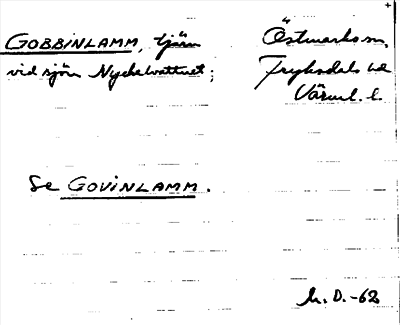 GOBBINLAMM, tjärn
vid sjön Nyckelvattnet;
Östmarks sn,
Fryksdals hd
Värml. l.
Se GOVINLAMM.
h. D. -62